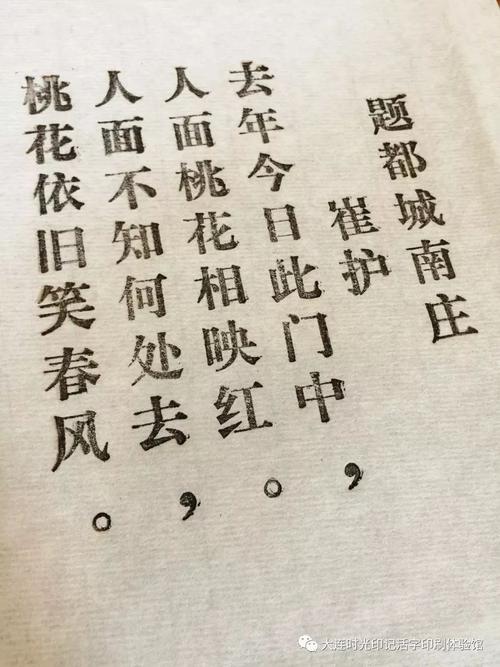 题都城南庄
崔护
去年今日此门中，
人面桃花相映红。
人面不知何处去，
桃花依旧笑春风。
大连时光印记活字印刷体验馆